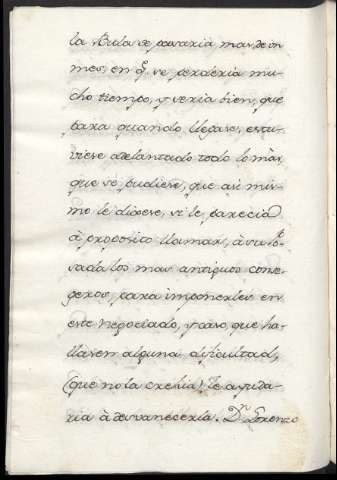 la Bula se pasaria mas, de un
mes, en q.e se perderia mu-
cho tiempo, y seria bien, que
para quando llegase, estu-
viese adelantado todo lo mas,
que se pudiese, que asi mis-
mo le dixese, si le parecia
à proposito llamar, à su Po-
sada los mas antiguos conse-
geros, para imponerles en
este negociado, y caso, que ha-
llasen alguna dificultad,
(que no la crehia) le ayuda-
ria à desvanecerla. D.n Lorenzo